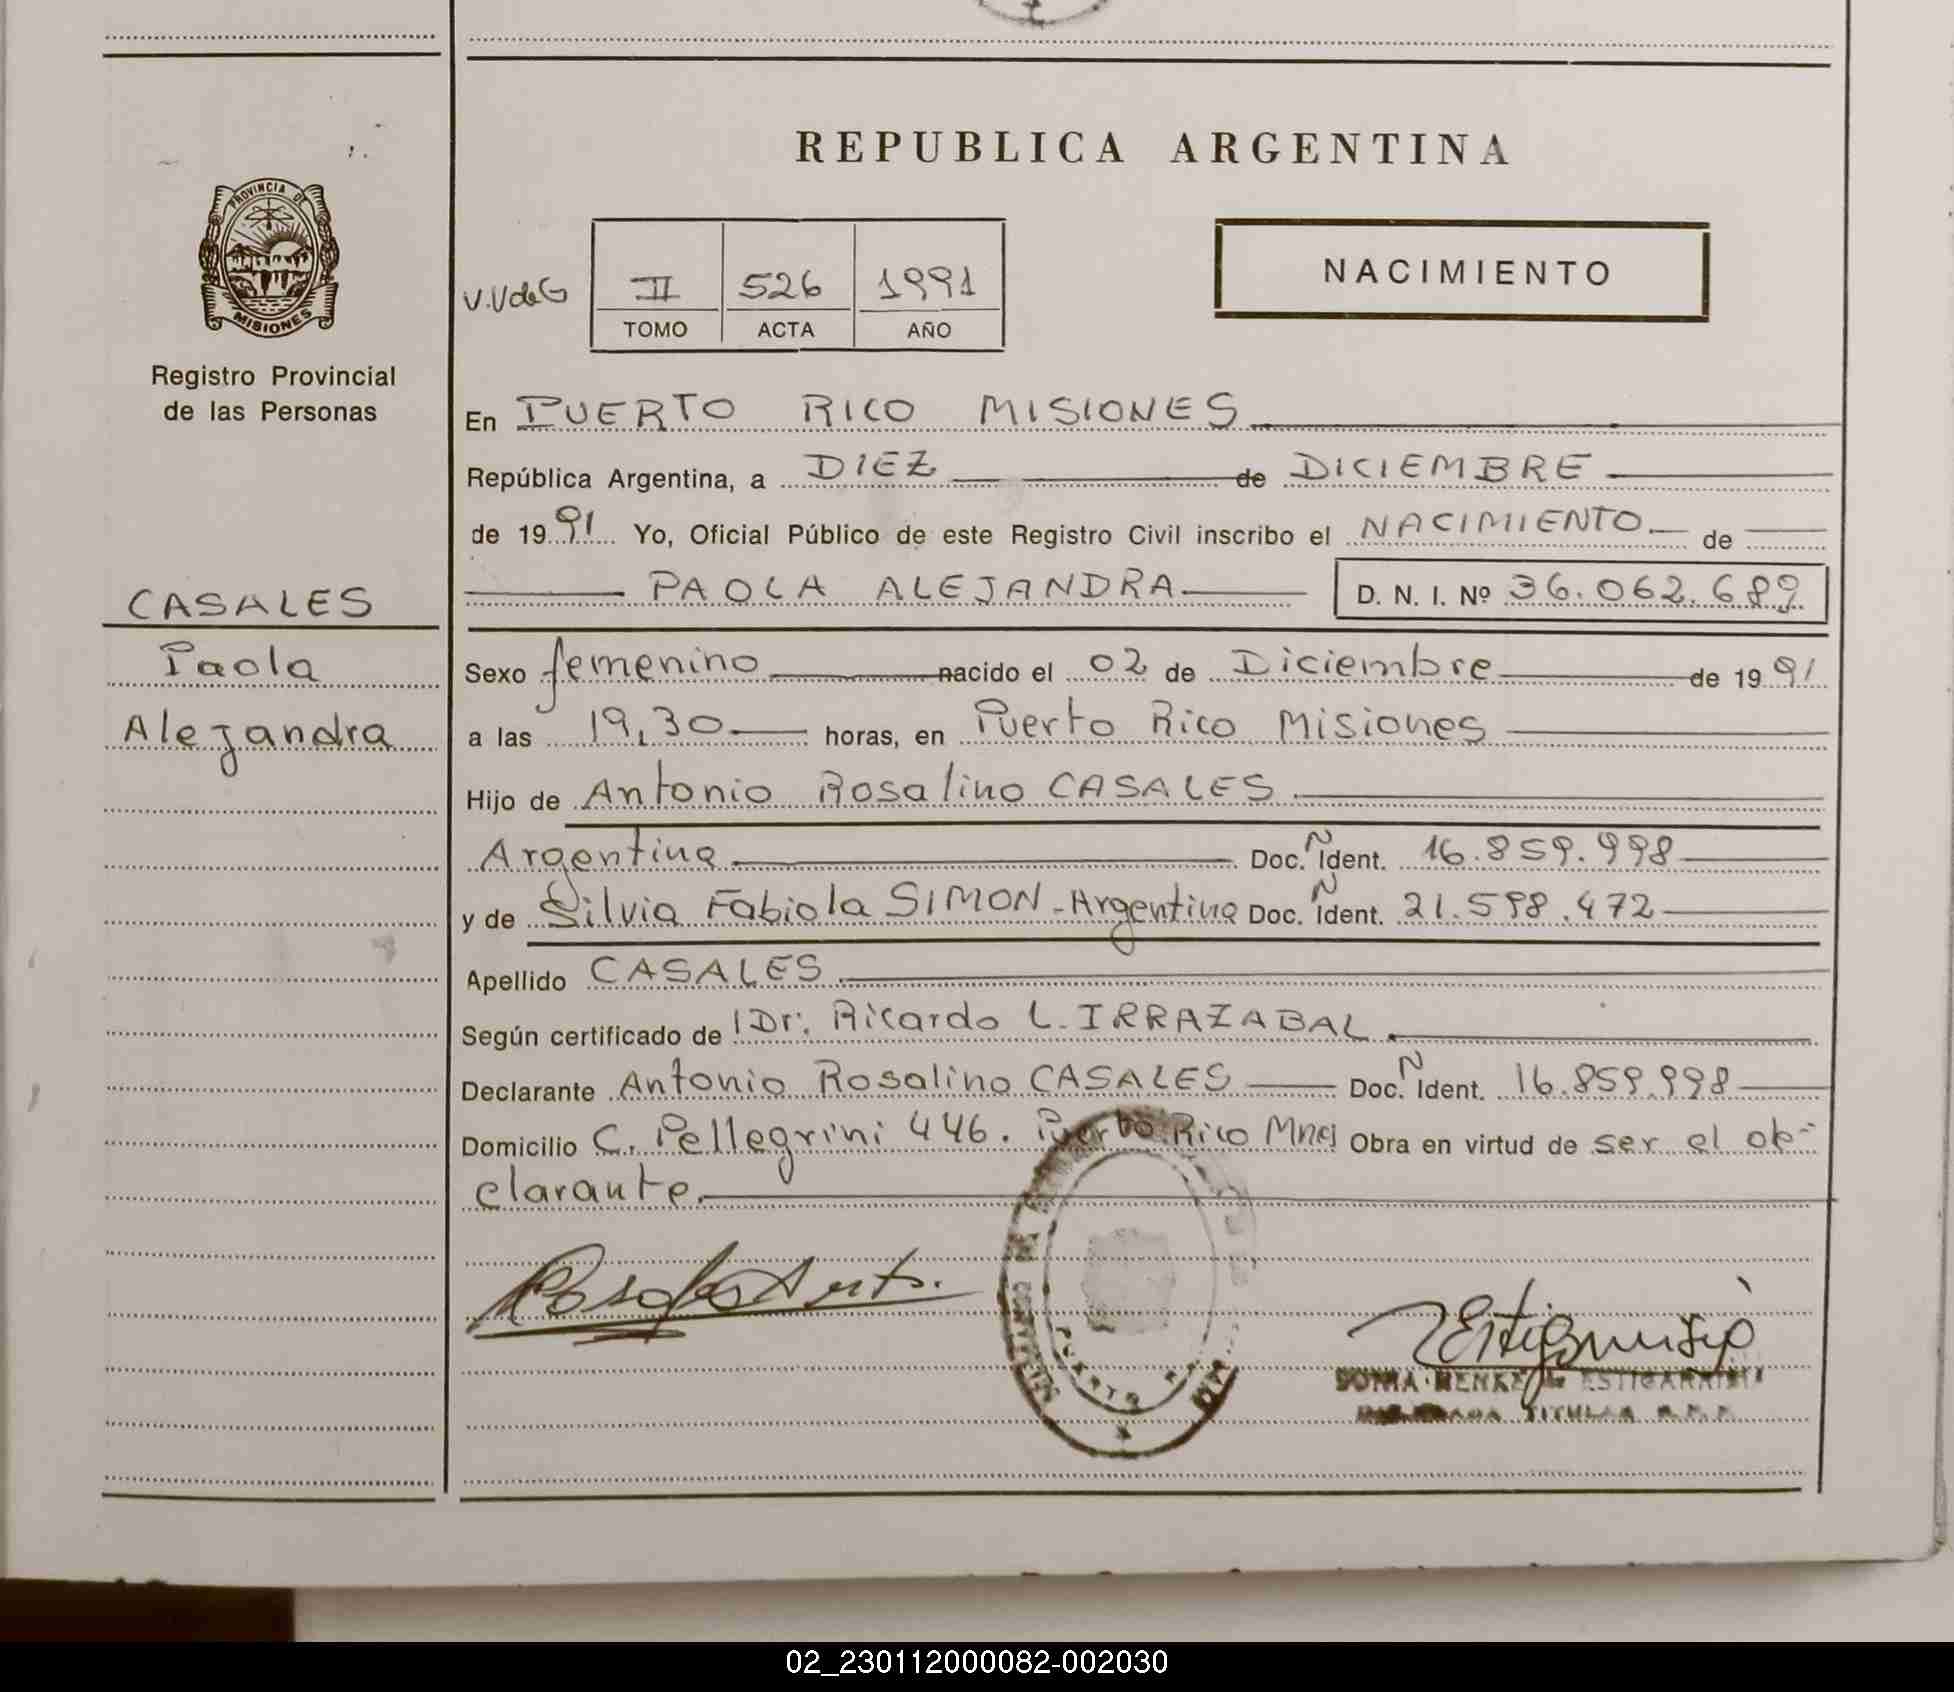 REPUBLICA ARGENTINA
PROVINCIA DE
MISIONES
Registro Provincial
de las Personas
NACIMIENTO
V.V de G
II 526 1991
TOMO ACTA AÑO
En PUERTO RICO MISIONES
República Argentina, a DIEZ de DICIEMBRE
de 19 91 Yo, Oficial Público de este Registro Civil inscribo el NACIMIENTO de
PAOLA ALEJANDRA D. N. I. Nº 36.062.689
CASALES
Paola
Alejandra
Sexo femenino nacido el 02 de Diciembre de 19 91
a las 19,30 horas, en Puerto Rico Misiones
Hijo de Antonio Rosalino CASALES
Argentina Doc. N Ident. 16.859.998
y de Silvia Fabiola SIMON - Argentina Doc. N Ident. 21.598.472
Apellido CASALES
Según certificado de Dr. Ricardo L. IRRAZABAL
Declarante Antonio Rosalino CASALES Doc. N Ident. 16.859.998
Domicilio C. Pellegrini 446. Puerto Rico Mnes Obra en virtud de ser el
clarante
PUERTO
TITULAR R.P.P.
02_230112000082-002030